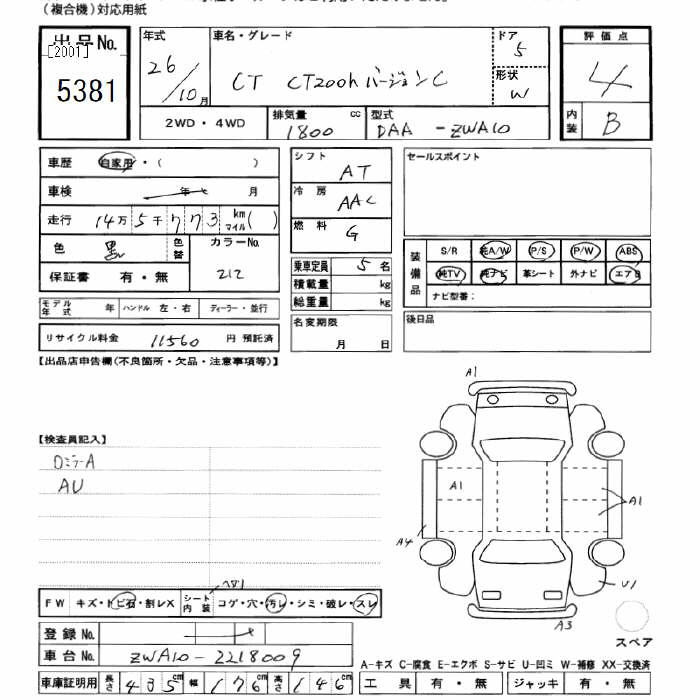 (複合機)対応用紙
出品No.
[2001]
5381
年式
26/10月
車名・グレード
CT CT200h バージョンC
ドア
5
形状
W
評価点
4
内装
B
2WD・4WD
排気量 1800 cc
型式 DAA - ZWA10
車歴 自家用・( )
車検 年 月
走行 14万5千773 km マイル( )
色 黒 色替
カラーNo. 212
保証書 有・無
モデル年式 年 ハンドル 左・右 ディーラー・並行
リサイクル料金 11560 円 預託済
シフト AT
冷房 AAC
燃料 G
乗車定員 5名
積載量 kg
総重量 kg
名変期限
月 日
セールスポイント
装備品
S/R 純A/W P/S P/W ABS
純TV 純ナビ 革シート 外ナビ エアB
ナビ型番:
後日品
【出品店申告欄(不良箇所・欠品・注意事項等)】
【検査員記入】
ロミラーA
AU
A1
A1
A1
A4
U1
A3
スペア
FW キズ・トビ石・割レX シート内装 コゲ・穴・汚レ・シミ・破レ・スレ
登録No.
車台No. ZWA10-2218009
車庫証明用 長さ 435cm 幅 176cm 高さ 146cm
A-キズ C-腐食 E-エクボ S-サビ U-凹ミ W-補修 XX-交換済
工具 有・無 ジャッキ 有・無